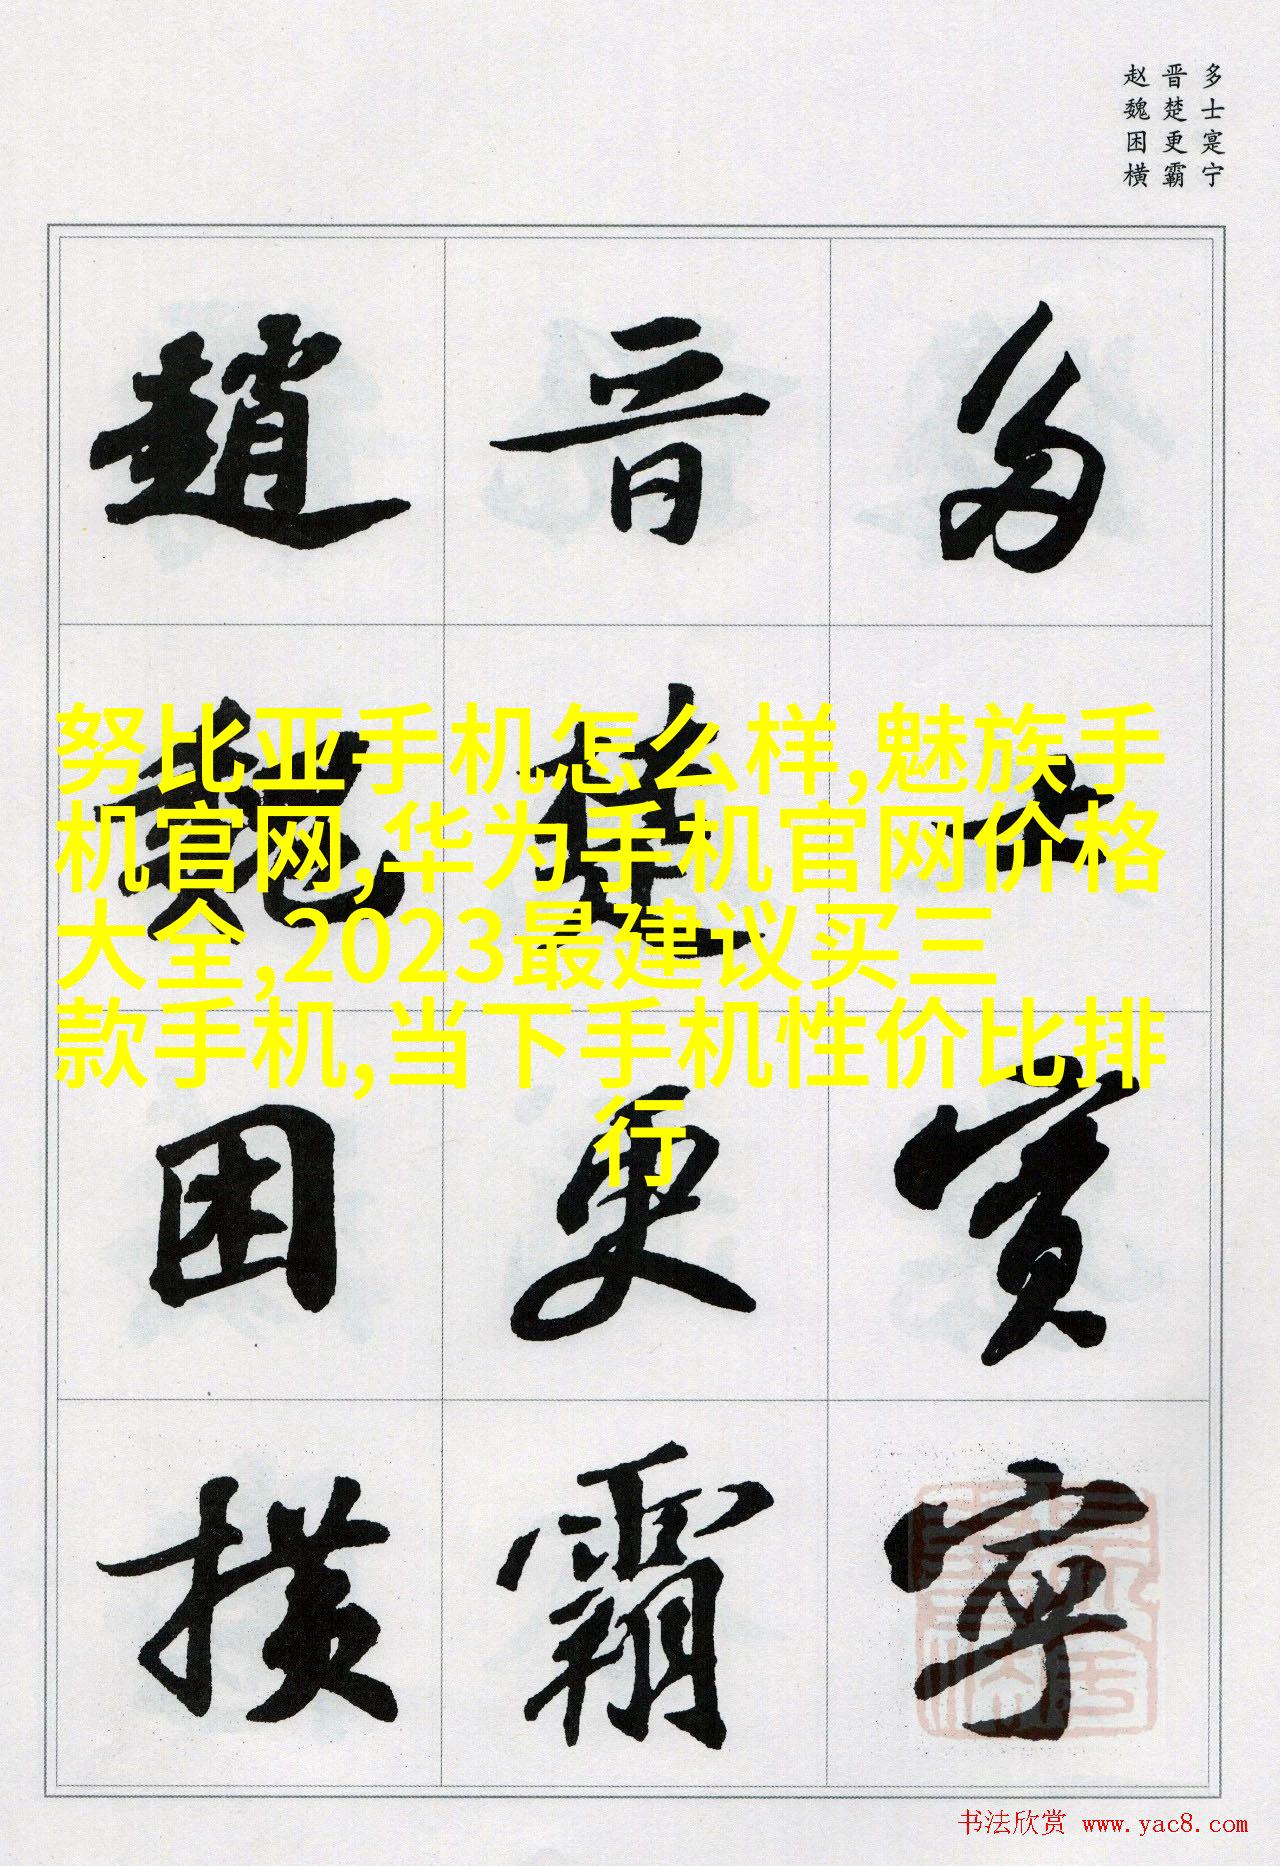 多士寔宁
晋楚更霸
赵魏困横
多 晋 趙
士 楚 魏
寔 更 困
寧 霸 横
努比亚手机怎么样,魅族手
机官网,华为手机官网价格
大全,2023最建议买三
款手机,当下手机性价比排
行
书法欣赏 www.yac8.com